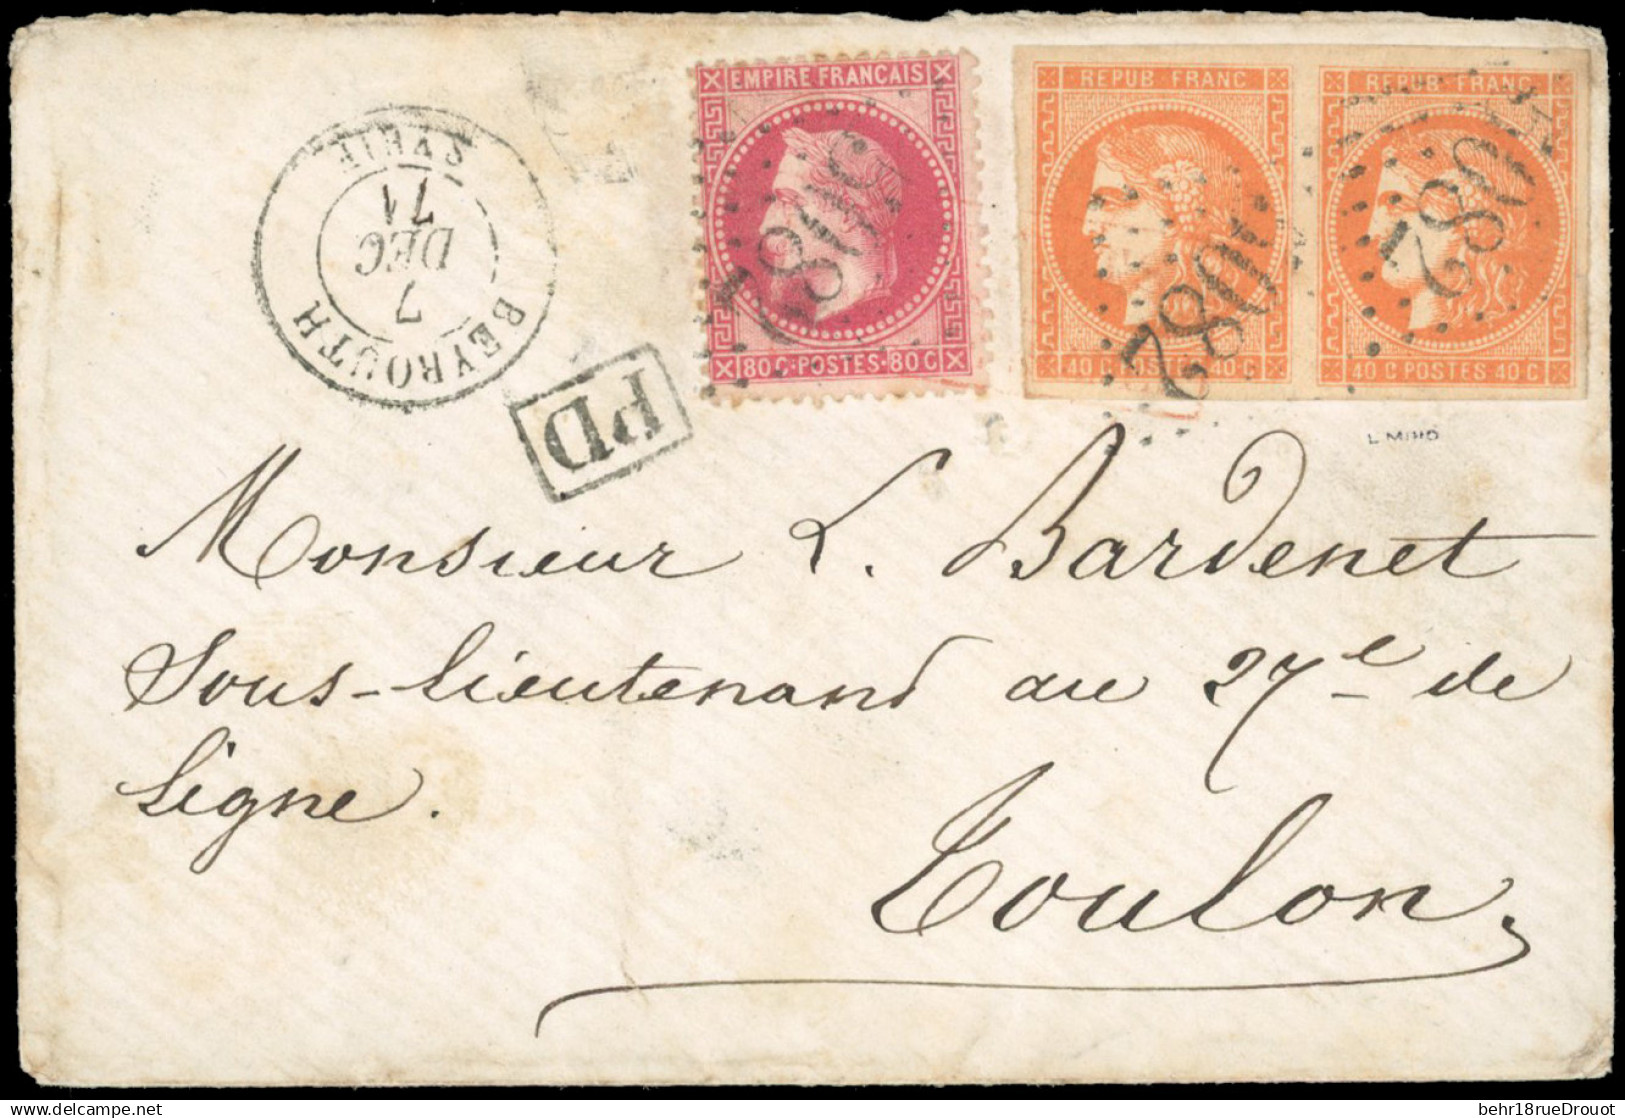 EMPIRE FRANCAIS
80 C · POSTES · 80 C
REPUB FRANC
40 C POSTES 40 C
REPUB FRANC
40 C POSTES 40 C
5082
5082
5082
BEYROUTH
7
DEC
71
SYRIE
PD
Monsieur L. Bardenet
Sous-lieutenant au 27e de
ligne.
Toulon,
behr18rueDrouot